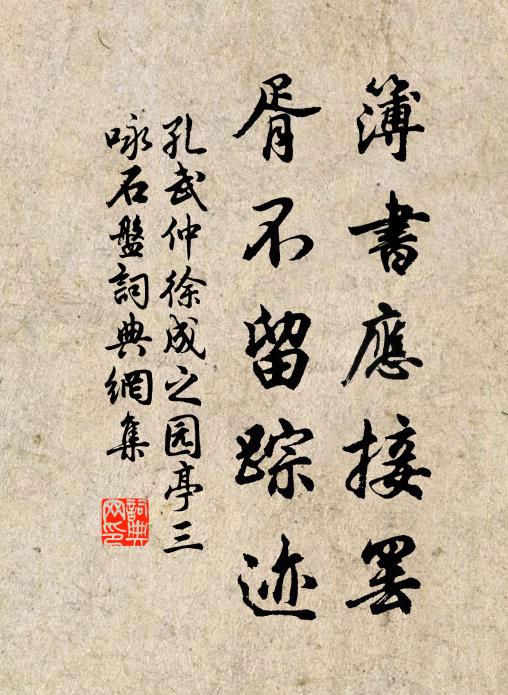 簿書應接罢
胥不留踪迹
孔武仲徐成之园亭三
咏石盤詞典網集
詞典网印